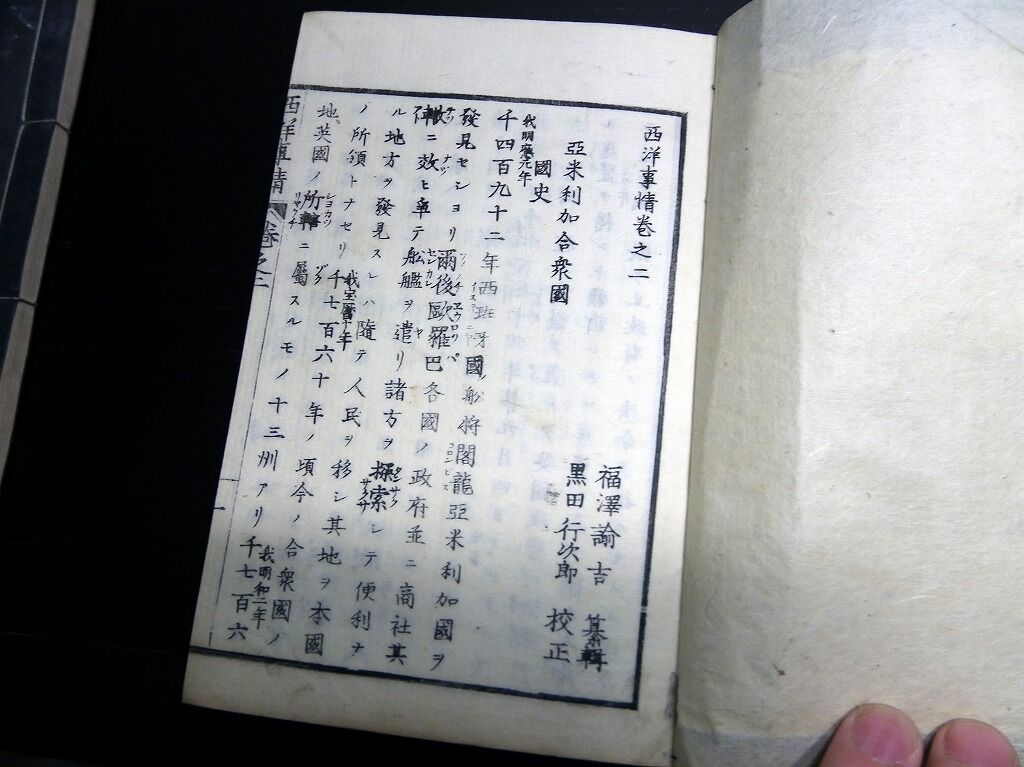 西洋事情卷之二
福澤諭吉 纂輯
黒田行次郎 校正
亞米利加合衆國
國史
我明應元年
千四百九十二年西班牙國ノ舩将閣龍亞米利加國ヲ
イスパニヤ
コロンビュス
發見セシヨリ爾後歐羅巴各國ノ政府並ニ商社其
ソノノチ
ニ效ヒ争テ舩艦ヲ遣リ諸方ヲ探索シテ便利ナ
センカン
ル地方ヲ發見スレハ隨テ人民ヲ移シ其地ヲ本國
ノ所領トナセリ千七百六十年ノ頃今ノ合衆國ノ
我宝暦十年
地英國ノ所轄ニ屬スルモノ十三州アリ千七百六
ショカツ
ゾク
我明和二年
西洋事情 卷之二
一